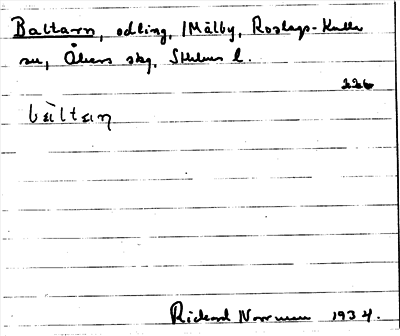 Baltarn, odling, /Mälby, Roslags-Kulla
sn, Åkers skg, Sthlms l.
226
bàltaɳ
Rickard Norrman 1934.